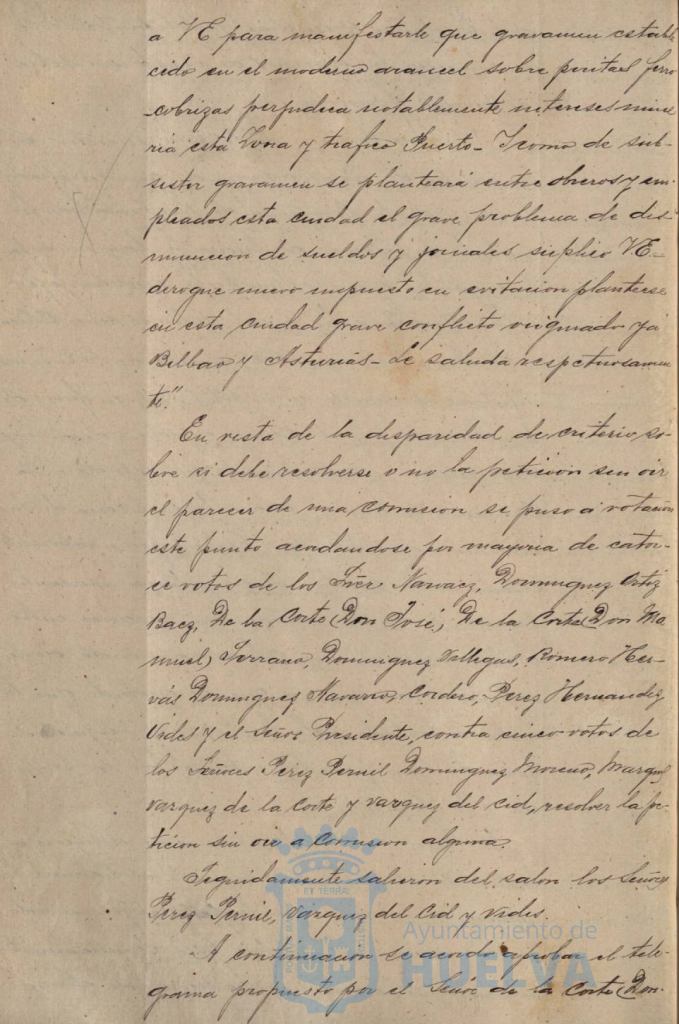 a VE para manifestarle que gravamen estable
cido en el moderno arancel sobre piritas ferro
cobrizas perjudica notablemente intereses mine
ria esta Zona y trafico Puerto- Y como de sub-
sistir gravamen se planteará entre obreros y em
pleados esta ciudad el grave problema de dis-
minucion de sueldos y jornales suplico VE-
derogue nuevo impuesto en evitacion plantease
en esta ciudad grave conflicto originado ya
Bilbao y Asturias- Le saluda respetuosamen
te."
En vista de la disparidad de criterio so-
bre si debe resolverse o no la peticion sin oir
el parecer de una comision se puso á votacion
este punto acordandose por mayoria de cator-
ce votos de los Sres Narvaez, Dominguez Ortiz
Baez, De la Corte (Don José), De la Corte (Don Ma
nuel) Serrano, Dominguez Villegas, Romero Her-
vás Dominguez Navarro, Cordero, Perez Hernandez
Vides y el Señor Presidente, contra cinco votos de
los Señores Perez Pernil Dominguez Moreno, Marquez
Vazquez de la Corte y Vazquez del Cid, resolver la pe-
ticion sin oir a Comision alguna.
Seguidamente salieron del salon los Señores
Perez Pernil, Vazquez del Cid y Vides.
A continuacion se acordó aprobar el tele-
grama propuesto por el Señor de la Corte (Don-
Ayuntamiento de
HUELVA